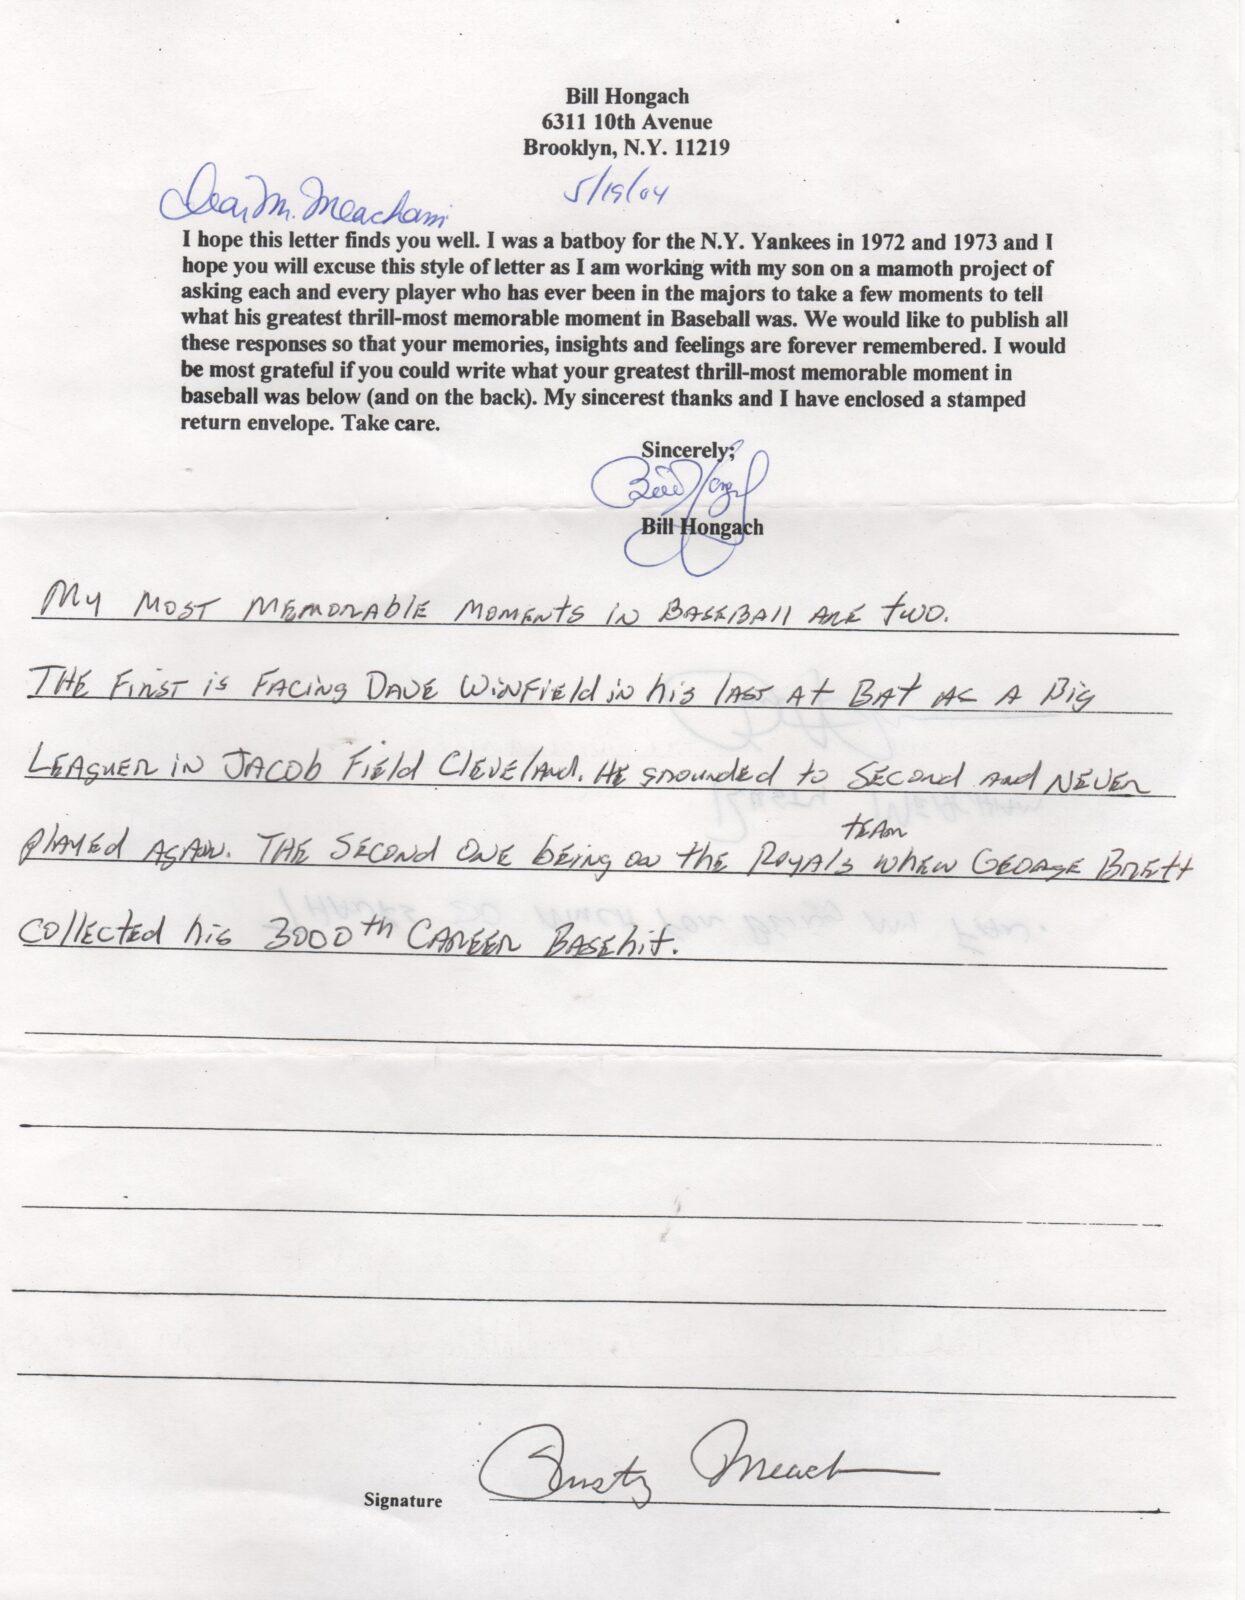 Bill Hongach
6311 10th Avenue
Brooklyn, N.Y. 11219
5/19/04
Dear Mr. Meacham
I hope this letter finds you well. I was a batboy for the N.Y. Yankees in 1972 and 1973 and I
hope you will excuse this style of letter as I am working with my son on a mamoth project of
asking each and every player who has ever been in the majors to take a few moments to tell
what his greatest thrill-most memorable moment in Baseball was. We would like to publish all
these responses so that your memories, insights and feelings are forever remembered. I would
be most grateful if you could write what your greatest thrill-most memorable moment in
baseball was below (and on the back). My sincerest thanks and I have enclosed a stamped
return envelope. Take care.
Sincerely;
Bill Hongach
Bill Hongach
My most memorable moments in Baseball are two.
The first is facing Dave Winfield in his last at Bat as a Big
Leaguer in Jacob Field Cleveland. He grounded to second and never
played again. The second one being on the Royals team when George Brett
collected his 3000th career Basehit.
Signature Rusty Meach